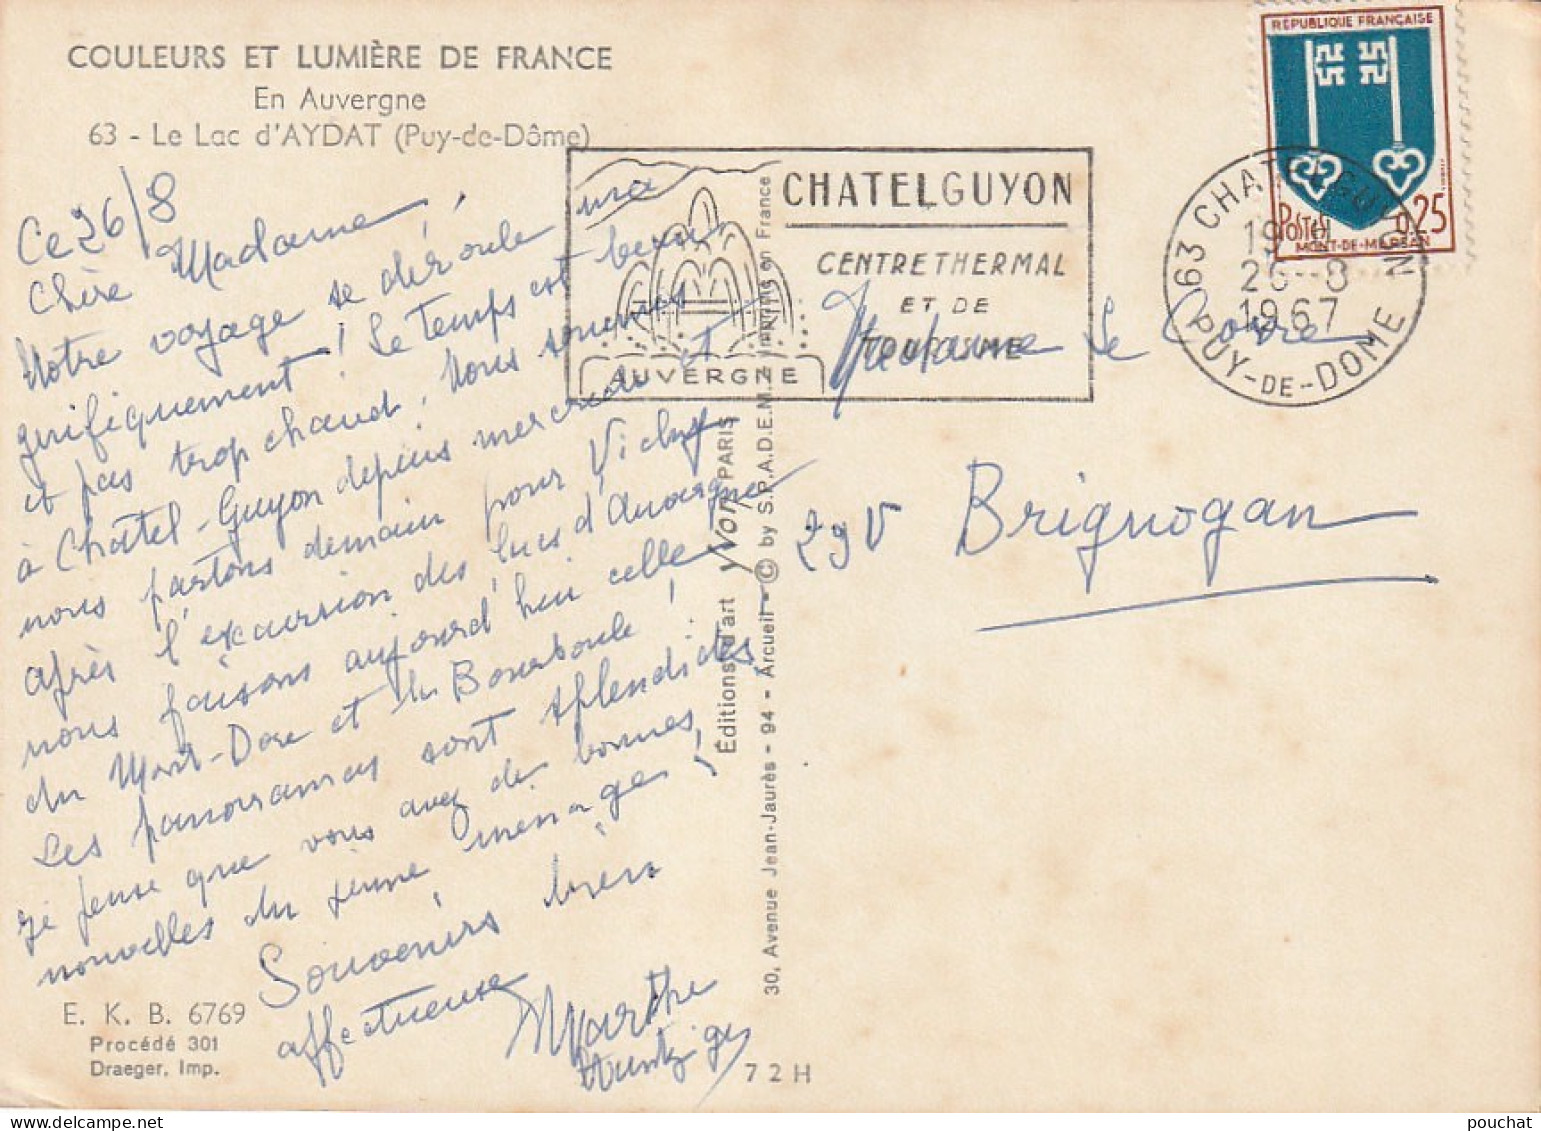 COULEURS ET LUMIÈRE DE FRANCE
En Auvergne
63 - Le Lac d'AYDAT (Puy-de-Dôme)
Ce 26/8
Chère Madame,
Notre voyage se déroule ma
gnifiquement ! Le temps est beau
et pas trop chaud. Nous sommes
à Châtel-Guyon depuis mercredi et
nous partons demain pour Vichy
après l'excursion des lacs d'Auvergne
nous faisons aujourd'hui celle
du Mont-Dore et la Bourboule !
Les panoramas sont splendides
je pense que vous avez de bonnes
nouvelles du jeune ménage !
Souvenirs bien
affectueux
Marthe
E. K. B. 6769
Procédé 301
Draeger, Imp.
Éditions d'art Yvon, PARIS
30, Avenue Jean-Jaurès - 94 - Arcueil - © by S.P.A.D.E.M. - Imprimé en France
72H
CHATELGUYON
CENTRE THERMAL
ET DE
TOURISME
AUVERGNE
RÉPUBLIQUE FRANÇAISE
POSTES
0,25
MONT-DE-MARSAN
63 CHATELGUYON
19H
26-8
1967
PUY-DE-DOME
Madame Le Corre
29N Brignogan
pouchat